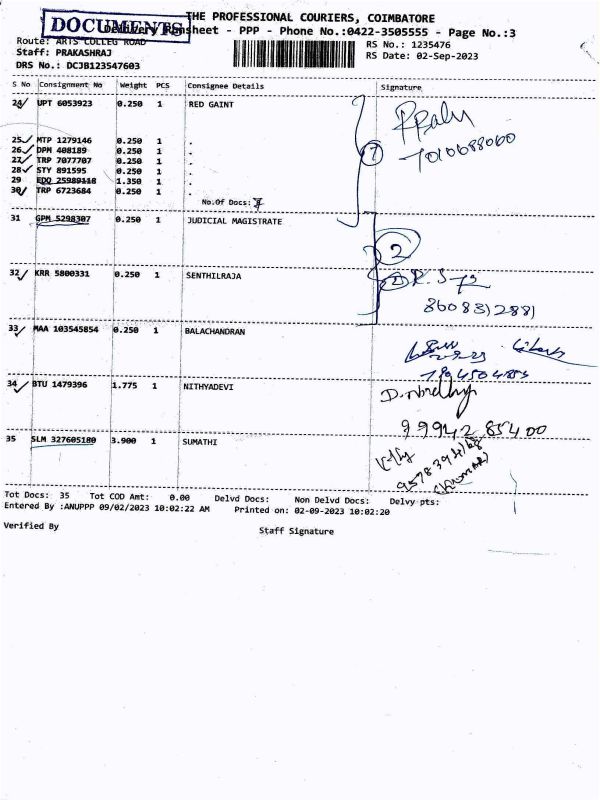 THE PROFESSIONAL COURIERS, COIMBATORE
DOCUMENTS
Delivery Runsheet - PPP - Phone No.:0422-3505555 - Page No.:3
Route: ARTS COLLEG ROAD
RS No.: 1235476
Staff: PRAKASHRAJ
RS Date: 02-Sep-2023
DRS No.: DCJB123547603
S No Consignment No Weight PCS Consignee Details Signature
24 UPT 6053923 0.250 1 RED GAINT
25 MTP 1279146 0.250 1 .
26 DPM 408189 0.250 1 .
27 TRP 7077707 0.250 1 .
28 STY 891595 0.250 1 .
29 EDQ 25989118 1.350 1 .
30 TRP 6723684 0.250 1 .
7
No.Of Docs:
31 GPM 5298307 0.250 1 JUDICIAL MAGISTRATE
2
32 KRR 5800331 0.250 1 SENTHILRAJA
2
8608312881
33 MAA 103545854 0.250 1 BALACHANDRAN
34 BTU 1479396 1.775 1 NITHYADEVI
99942 85400
35 SLM 327605180 3.900 1 SUMATHI
Tot Docs: 35 Tot COD Amt: 0.00 Delvd Docs: Non Delvd Docs: Delvy pts:
Entered By :ANUPPP 09/02/2023 10:02:22 AM Printed on: 02-09-2023 10:02:20
Verified By
Staff Signature